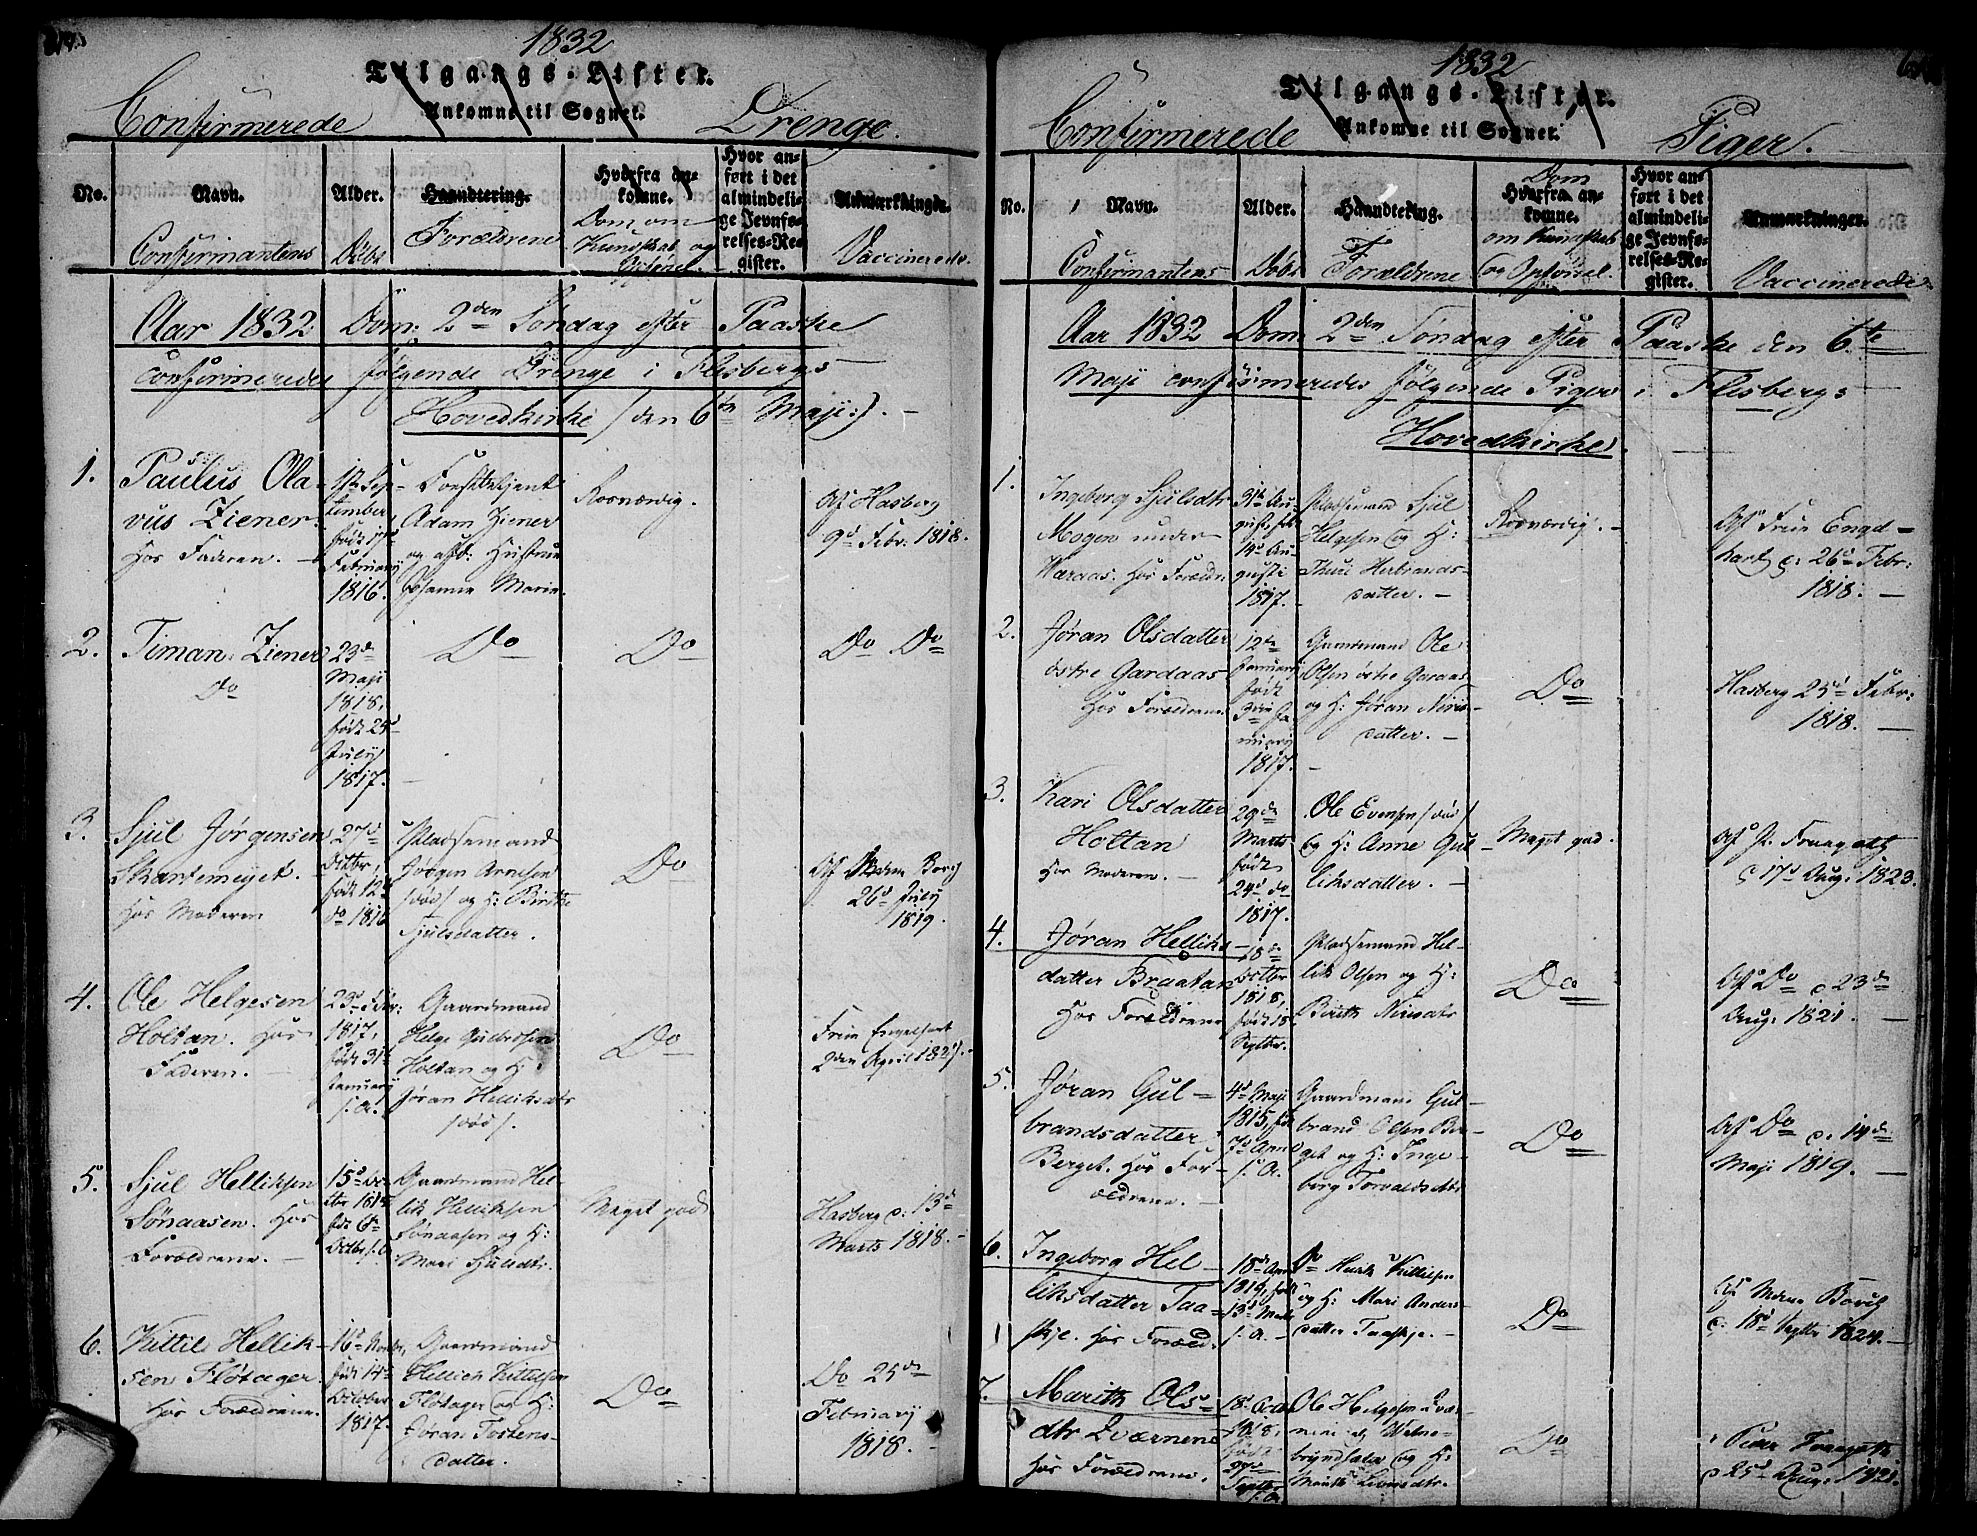 1832
Tilgangs-Lister.
Ankomne til Sognet.
Confirmerede Drenge.
No.
Navn.
Confirmantens
Alder.
Døbt
Haandtering.
Forældrene
Hvorfra an-
komne.
Dom om
Kundskab og
Opførsel.
Hvor an-
ført i det
almindeli-
ge Jevnfø-
relses-Re-
gister.
Anmærkninger.
Vaccinerede.
Aar 1832 Dom: 2den Søndag efter Paaske
confirmeredes følgende Drenge i Flesbergs
Hovedkirke /den 6te Maji:/. -
1.
Paulus Ola-
vus Ziener.
Hos Faderen. -
17de Sep-
tember
født 17de
Februarij
1816.
Adam Ziener
og afd. Hustrue
Johanne Marie.
Roesværdig.
Af Hasberg
9d Febr: 1818.
2.
Timan Ziener
Do
23de
Maji
1818,
født 25d
Julij
1817.
Do
Do
Do Do
3.
Sjul Jørgensen
Hos Moderen
27d
Octbr,
født 12d
do 1816
Pladsemand
Jørgen Arnesen
/død/ og H: Birthe
Sjulsdatter.
Do
26d Julij
1819.
4.
Ole Helgesen
Holtan. Hos
Faderen. -
23d Febr:
1817,
født 31te
Januarij
s. A.
Gaardmand
Helge Gulbrdsen
Holtan og H:
Jøran Helliksdtr
/død/.
Do
Frue Engelhart
5.
Sjul Helliksen
Sønaasen. Hos
Forældrene. -
Gaardmand Hel-
lik Helliksen
Sønaasen og H:
Mari Sjulsdtr.
Meget god
Hasberg d: 13de
Marts 1818. -
6.
Kittil Hellik-
sen Fløtager.
Hos Forældrene.
16d Novbr,
født 14de
October
1817.
Gaardmand
Hellich Kittilsen
Fløtager og H:
Jøran Tostens-
datter.
Do
Do 25de
Februarij
1818. -
1832
Tilgangs-Lister.
Ankomne til Sognet.
Confirmerede Piger.
No.
Navn.
Confirmantens
Alder.
Døbt
Haandtering.
Forældrene
Dom
Hvorfra an-
komne.
om Kundskab
og Opførsel.
Hvor an-
ført i det
almindeli-
ge Jevnfø-
relses-Re-
gister.
Anmærkninger.
Vaccinerede
Aar 1832 Dom: 2den Søndag efter Paaske den 6te
Maji confirmeredes følgende Piger i Flesbergs
Hovedkirke.
1.
Ingeborg Sjulsdtr
Mogen under
Waraas. Hos Forældr:
31te Au-
gust, født
14d Au-
gusti
1817.
Pladsemand Sjul
Helgesen og H:
Thuri Herbrands-
datter. -
Roesværdig. -
Af Frue Engel-
hart d: 26d Febr:
1818. -
2.
Jøran Olsdatter
østre Gardaas
Hos Forældrene
12de
Januarij
født
3die Ja-
nuarij
1817.
Gaardmand Ole
Olsen østre Garaas
og H: Jøran Niris-
datter. -
Do
Hasberg 25d Febr:
1818. -
3.
Kari Olsdatter
Holtan
Hos Moderen. -
29de
Marts
født
24d do
1817.
Ole Evensen /død/
og H: Anne Gul-
liksdatter. -
Meget god.
d 17d Aug: 1823.
4.
Jøran Helliks-
datter Braatan
Hos Forældrene
18de
Octbr
1818,
født 18
Septbr.
Pladsemand Hel-
lik Olsen og H:
Birith Nirisdtr
Do
Af Do d 23de
Aug: 1821. -
5.
Jøran Gul-
brandsdatter
Berget. Hos For-
ældrene. -
4d Maji
1815, født
7d April
s. A.
Gaardmand Gul-
brand Olsen Ber-
get og H: Inge-
borg Torvaldsdtr
Do
Af Do d. 14de
Maji 1819. -
6.
Ingeborg Hel-
liksdatter Taa-
skje. Hos Foræld.
Do Hellik Kittilsen
og H: Mari Anders-
datter Taaskje. -
Do
d. 18d Septbr 1824. -
7.
Marith Ols-
dtr Qværnene
Hos Forældrene.
Ole Helgesen Qvær-
Do
d 25d Aug: 1821.